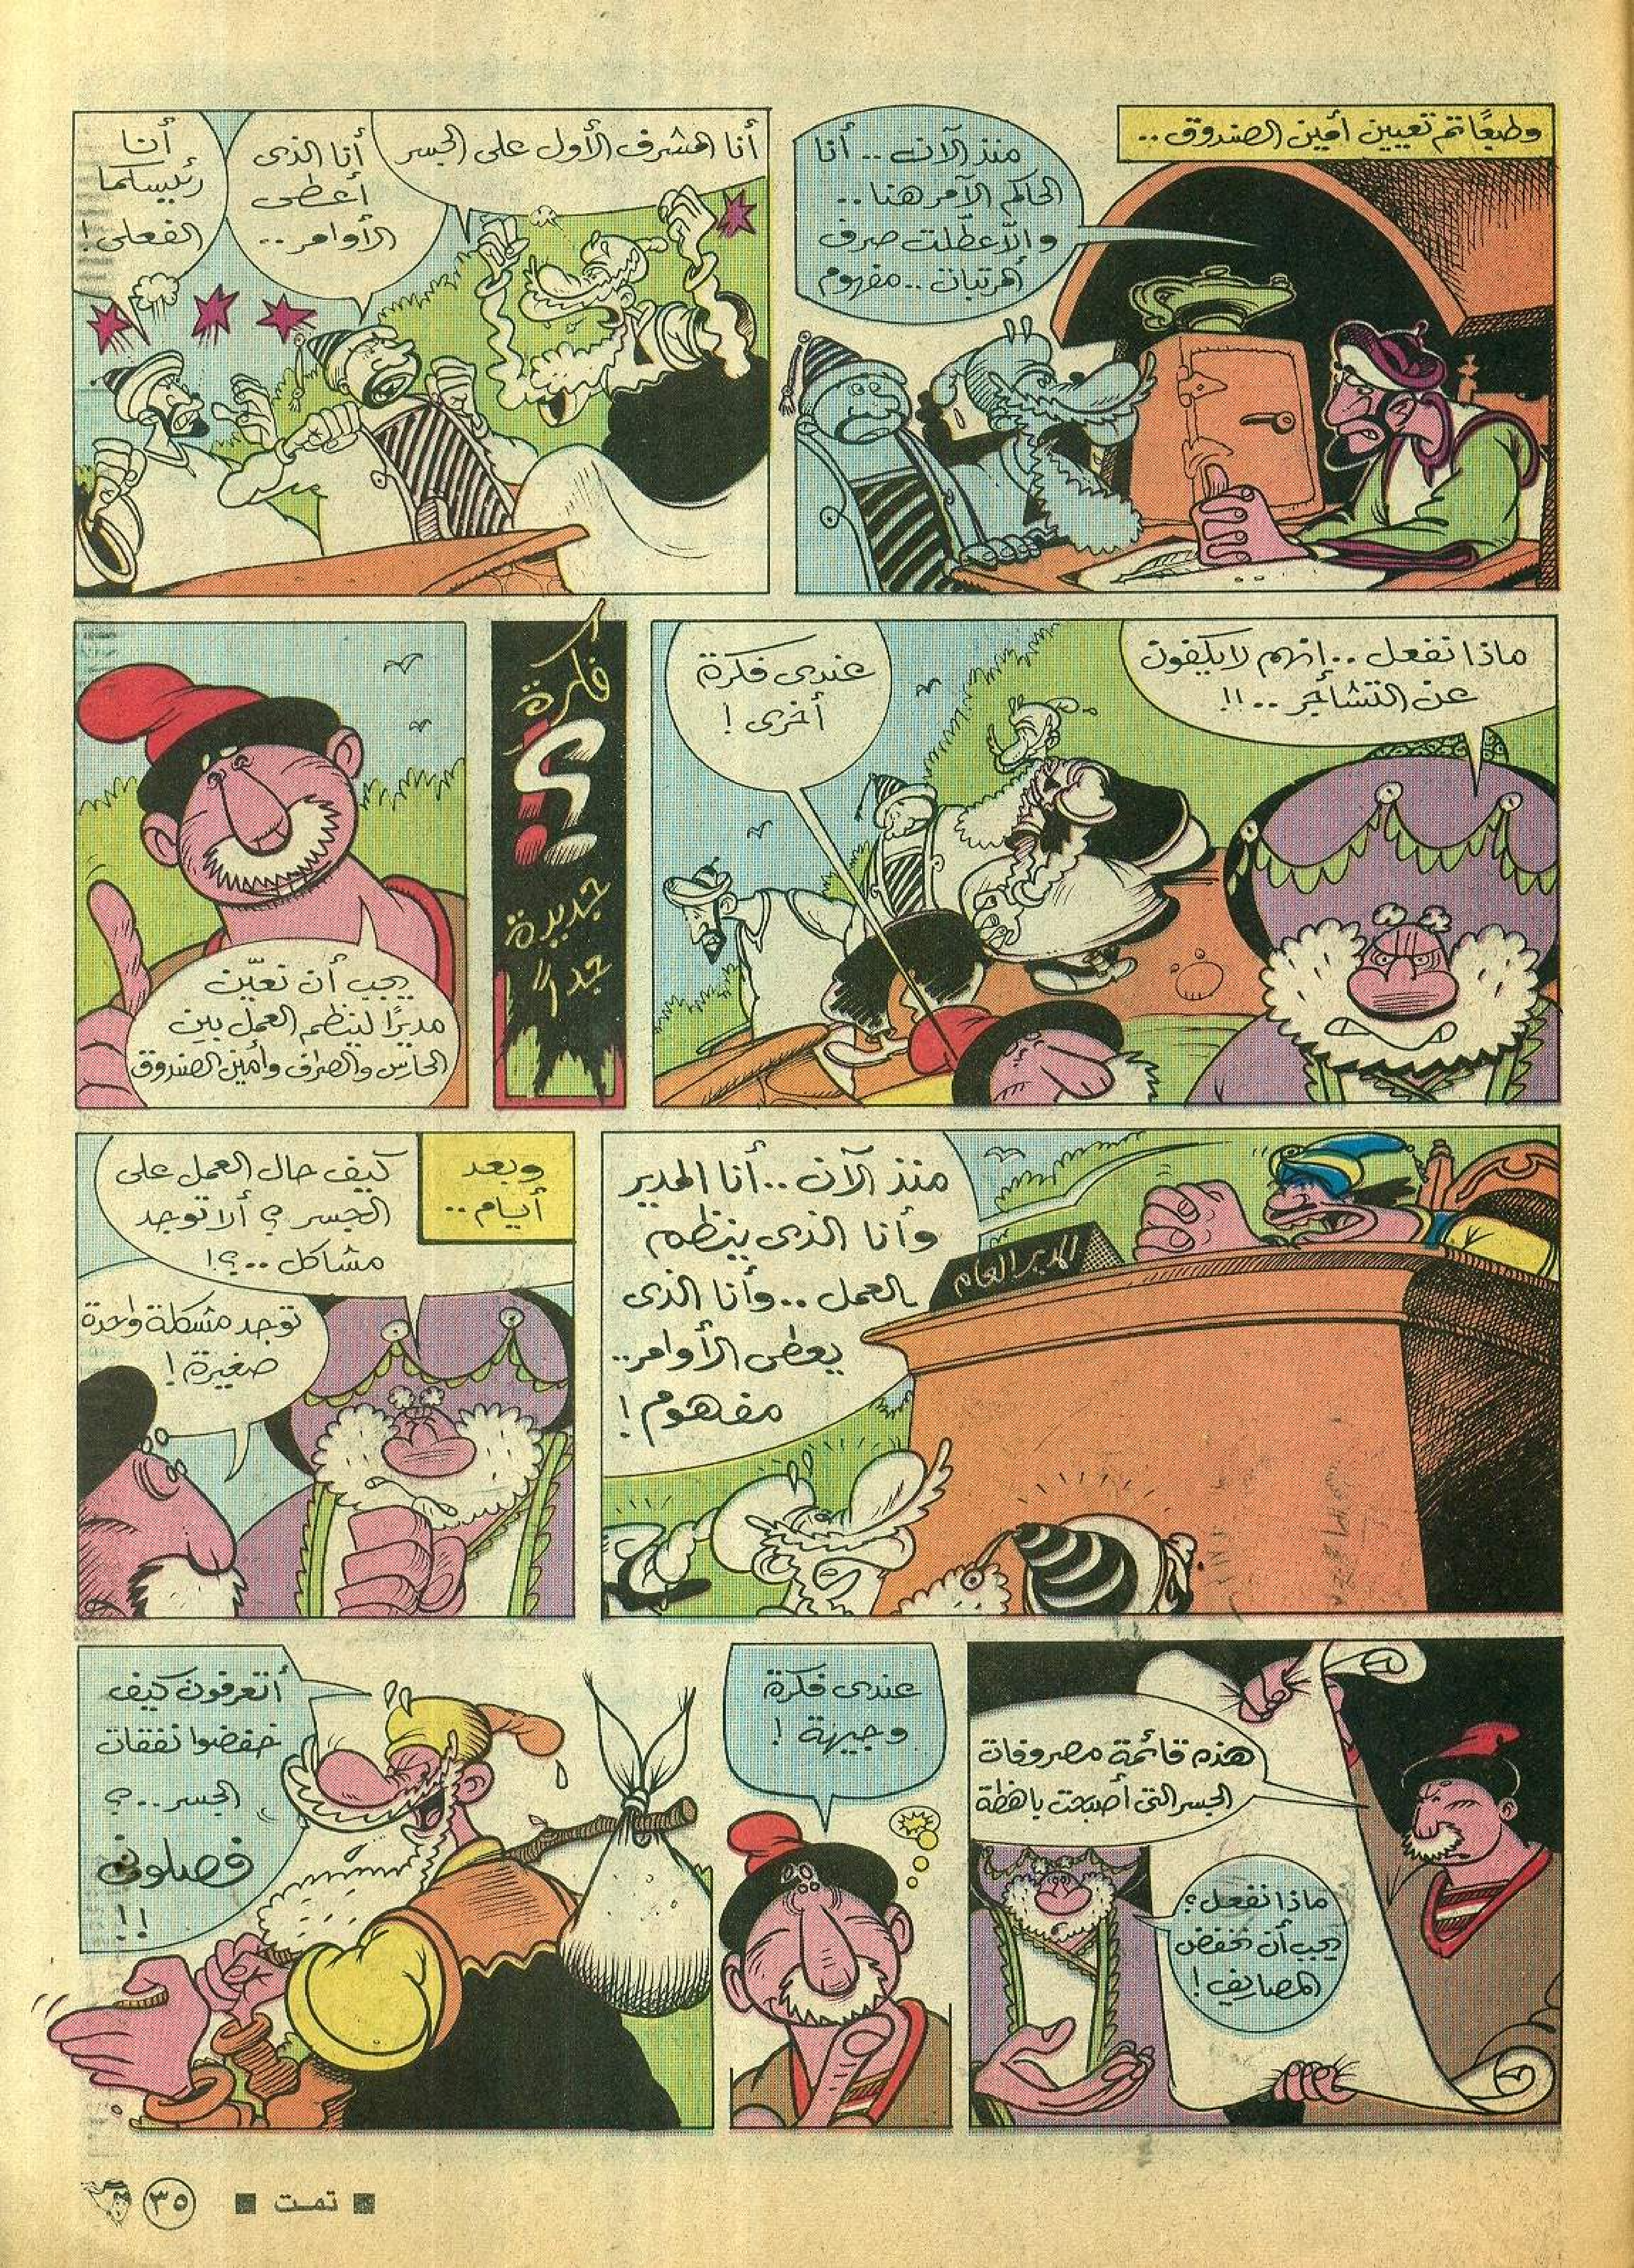 وطبعًا تم تعيين أمين الصندوق ..
منذ الآن .. أنا
الحاكم الآمر هنا ..
وإلا عطّلت صرف
المرتبات .. مفهوم
أنا المشرف الأول على الجسر
أنا الذى
أعطى
الأوامر ..
أنا
رئيسكما
الفعلى !
ماذا نفعل .. إنهم لا يكفون
عن التشاجر .. !!
عندى فكرة
أخرى !
فكرة
جديدة
جداً
يجب أن نعيّن
مديرًا لينظم العمل بين
الحارس والصراف وأمين الصندوق
منذ الآن .. أنا المدير
وأنا الذى ينظم
العمل .. وأنا الذى
يعطى الأوامر ..
مفهوم !
المدير العام
وبعد
أيام ..
كيف حال العمل على
الجسر ؟ ألا توجد
مشاكل .. ؟!
توجد مشكلة واحدة
صغيرة !
هذه قائمة مصروفات
الجسر التى أصبحت باهظة
ماذا نفعل ؟
يجب أن نخفض
المصاريف !
عندى فكرة
وجيهة !
أتعرفون كيف
خفضوا نفقات
الجسر .. ؟
فصلونى
!!
■ تمت ■
٣٥